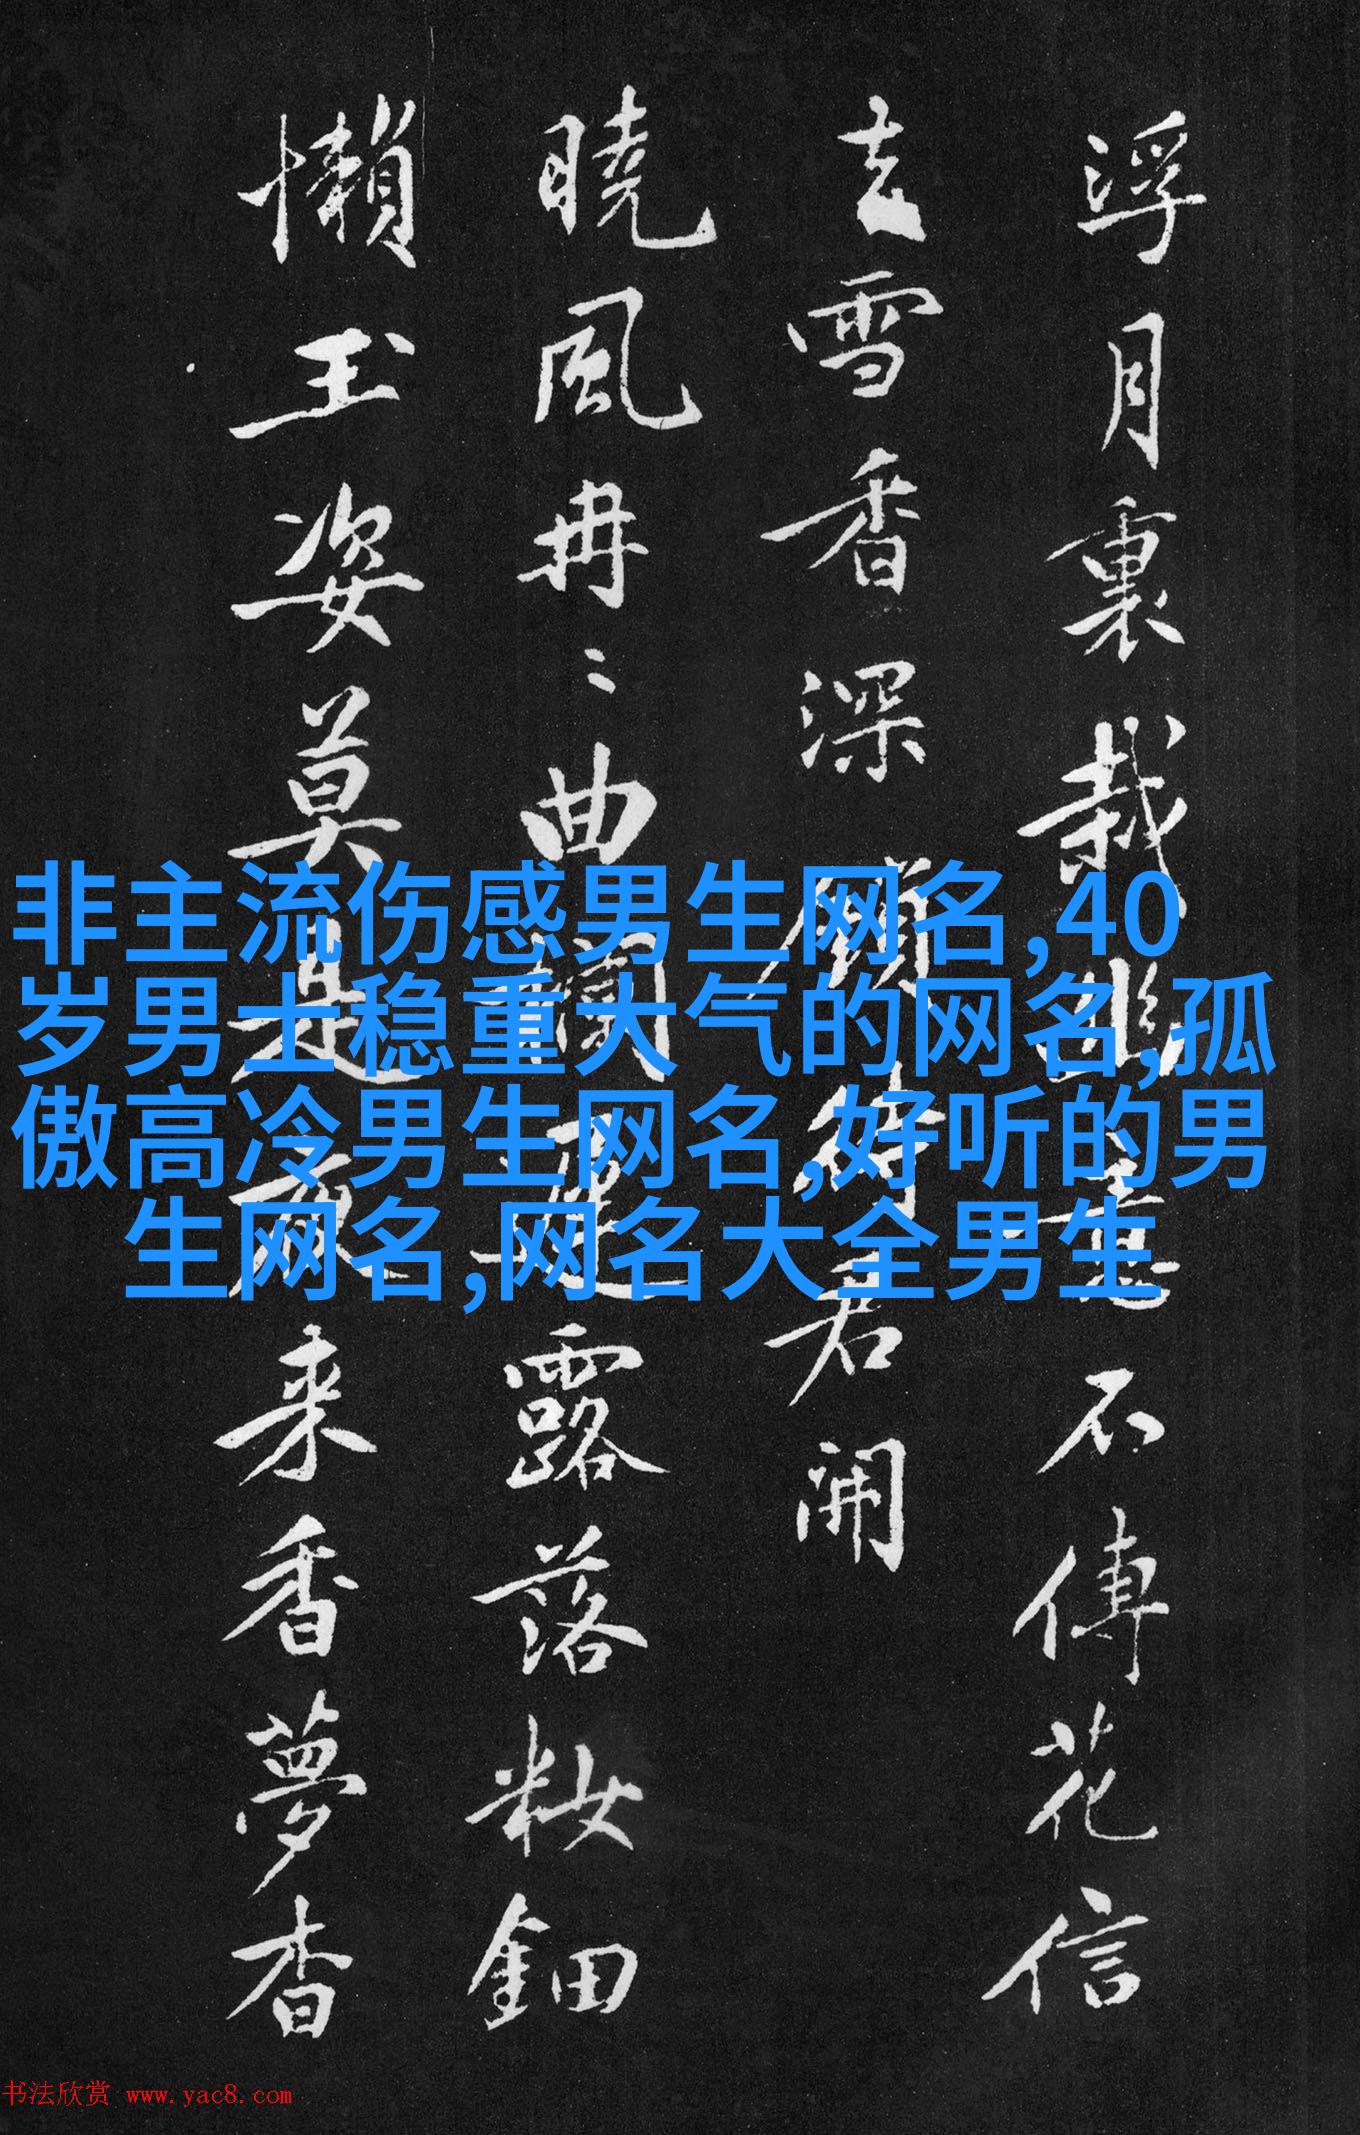 浮月裏栽幽意不傳花信
去雪香深鎖待君開
曉風冉〻曲闌邊露落妝鈿
懶玉姿莫是夜來香夢香
非主流伤感男生网名,40
岁男士稳重大气的网名,孤
傲高冷男生网名,好听的男
生网名,网名大全男生
书法欣赏 www.yac8.com